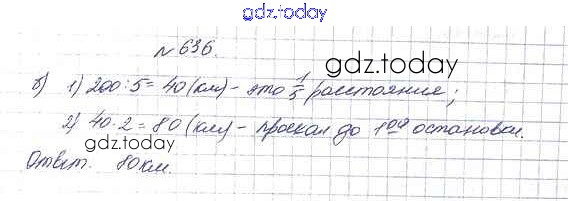 gdz.today
№636.
gdz.today
б) 1) 200:5=40(км)- это 1/5 расстояние;
2) 40·2=80(км)- проехал до 1ой остановки.
gdz.today
Ответ. 80км.